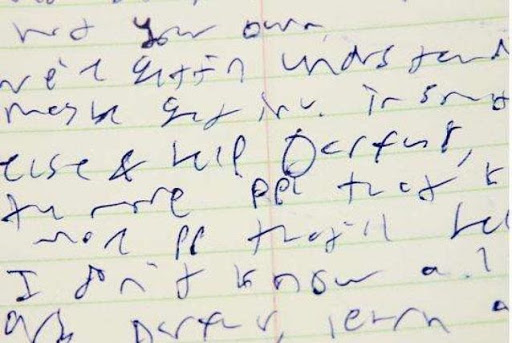 not your own
we're gettin understand
maybe get inv. in smt
else & help Darfur,
the more ppl that k
more pp that'll hel
I don't know all
Darfur, learn a